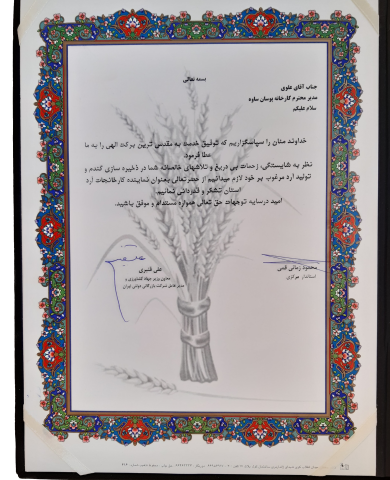 بسمه تعالی
جناب آقای علوی
مدیر محترم کارخانه بوستان ساوه
سلام علیکم
خداوند منان را سپاسگزاریم که توفیق خدمت به مقدس ترین برکت الهی را به ما
عطا فرمود.
نظر به شایستگی، زحمات بی دریغ و تلاشهای خالصانه شما در ذخیره سازی گندم و
تولید آرد مرغوب بر خود لازم میدانیم از حضرتعالی بعنوان نماینده کارخانجات آرد
استان تشکر و قدردانی نمائیم.
امید درسایه توجهات حق تعالی همواره مستدام و موفق باشید.
محمود زمانی قمی
استاندار مرکزی
علی قنبری
معاون وزیر جهاد کشاورزی و
مدیر عامل شرکت بازرگانی دولتی ایران